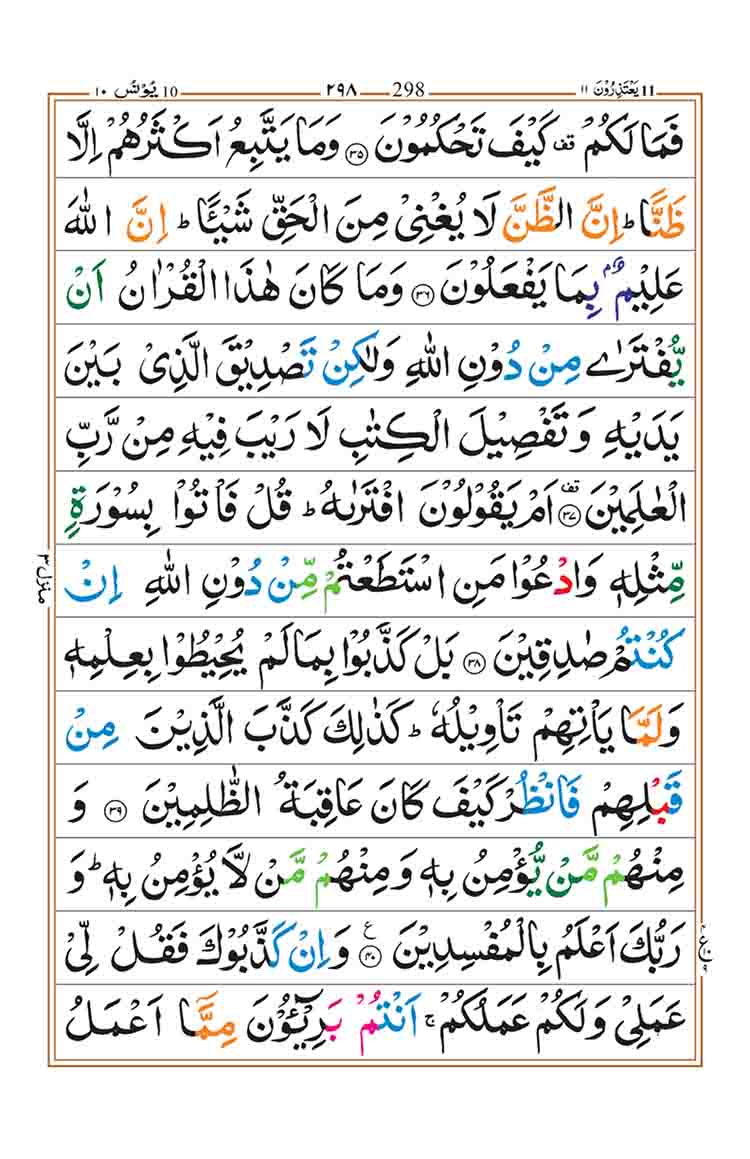 ۱۱ یَعْتَذِرُوْنَ 11 298 ۲۹۸ 10 یُوْنُس ۱۰
فَمَا لَكُمْ قف كَیْفَ تَحْكُمُوْنَ ﴿۳۵﴾ وَمَا یَتَّبِعُ اَكْثَرُهُمْ اِلَّا
ظَنًّا ؕ اِنَّ الظَّنَّ لَا یُغْنِیْ مِنَ الْحَقِّ شَیْـًٔا ؕ اِنَّ اللّٰهَ
عَلِیْمٌۢ بِمَا یَفْعَلُوْنَ ﴿۳۶﴾ وَمَا كَانَ هٰذَا الْقُرْاٰنُ اَنْ
یُّفْتَرٰی مِنْ دُوْنِ اللّٰهِ وَلٰكِنْ تَصْدِیْقَ الَّذِیْ بَیْنَ
یَدَیْهِ وَتَفْصِیْلَ الْكِتٰبِ لَا رَیْبَ فِیْهِ مِنْ رَّبِّ
الْعٰلَمِیْنَ ﴿۳۷﴾ قف اَمْ یَقُوْلُوْنَ افْتَرٰىهُ ؕ قُلْ فَاْتُوْا بِسُوْرَةٍ
مِّثْلِهٖ وَادْعُوْا مَنِ اسْتَطَعْتُمْ مِّنْ دُوْنِ اللّٰهِ اِنْ
كُنْتُمْ صٰدِقِیْنَ ﴿۳۸﴾ بَلْ كَذَّبُوْا بِمَا لَمْ یُحِیْطُوْا بِعِلْمِهٖ
وَلَمَّا یَاْتِهِمْ تَاْوِیْلُهٗ ؕ كَذٰلِكَ كَذَّبَ الَّذِیْنَ مِنْ
قَبْلِهِمْ فَانْظُرْ كَیْفَ كَانَ عَاقِبَةُ الظّٰلِمِیْنَ ﴿۳۹﴾ وَ
مِنْهُمْ مَّنْ یُّؤْمِنُ بِهٖ وَمِنْهُمْ مَّنْ لَّا یُؤْمِنُ بِهٖ ؕ وَ
رَبُّكَ اَعْلَمُ بِالْمُفْسِدِیْنَ ﴿۴۰﴾ ع وَاِنْ كَذَّبُوْكَ فَقُلْ لِّیْ
عَمَلِیْ وَلَكُمْ عَمَلُكُمْ ۚ اَنْتُمْ بَرِیْٓـُٔوْنَ مِمَّاۤ اَعْمَلُ
منزل ۳